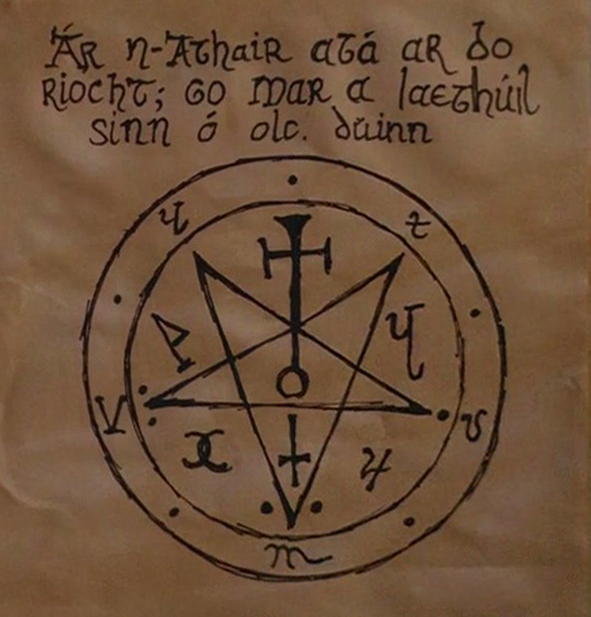 Ár n-Athair atá ar do
Ríocht; Go mar a laethúil
sinn ó olc. dúinn